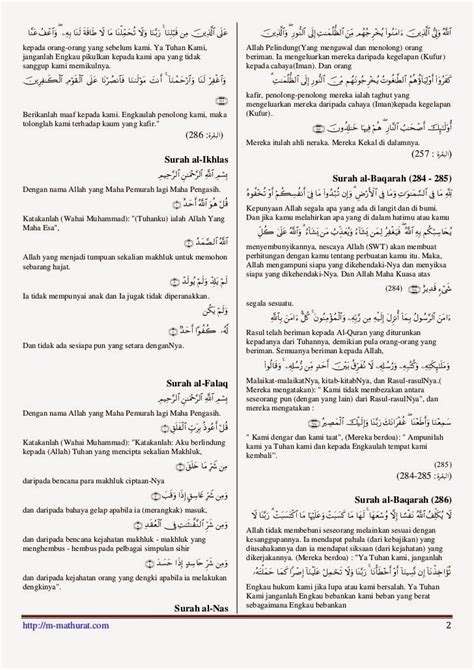 ٱللَّهُ وَلِىُّ ٱلَّذِينَ ءَامَنُوا۟ يُخْرِجُهُم مِّنَ ٱلظُّلُمَـٰتِ إِلَى ٱلنُّورِ ۖ وَٱلَّذِينَ
Allah Pelindung(Yang mengawal dan menolong) orang
beriman. Ia mengeluarkan mereka daripada kegelapan (kufur)
kepada cahaya(Iman). Dan orang
كَفَرُوٓا۟ أَوْلِيَآؤُهُمُ ٱلطَّـٰغُوتُ يُخْرِجُونَهُم مِّنَ ٱلنُّورِ إِلَى ٱلظُّلُمَـٰتِ ۗ
kafir, penolong-penolong mereka ialah taghut yang
mengeluarkan mereka daripada cahaya(Iman)kepada kegelapan
(Kufur).
أُو۟لَـٰٓئِكَ أَصْحَـٰبُ ٱلنَّارِ ۖ هُمْ فِيهَا خَـٰلِدُونَ
Mereka itulah ahli neraka. Mereka Kekal di dalamnya.
(البقرة : 257)
Surah al-Baqarah (284 - 285)
لِّلَّهِ مَا فِى ٱلسَّمَـٰوَٰتِ وَمَا فِى ٱلْأَرْضِ ۗ وَإِن تُبْدُوا۟ مَا فِىٓ أَنفُسِكُمْ أَوْ تُخْفُوهُ
Kepunyaan Allah segala apa yang ada di langit dan di bumi.
Dan jika kamu melahirkan apa yang di dalam hatimu atau kamu
يُحَاسِبْكُم بِهِ ٱللَّهُ ۖ فَيَغْفِرُ لِمَن يَشَآءُ وَيُعَذِّبُ مَن يَشَآءُ ۗ وَٱللَّهُ عَلَىٰ كُلِّ
menyembunyikannya, nescaya Allah (SWT) akan membuat
perhitungan dengan kamu tentang perbuatan kamu itu. Maka,
Allah mengampuni siapa yang dikehendaki-Nya dan menyiksa
siapa yang dikehendaki-Nya. Dan Allah Maha Kuasa atas
شَىْءٍ قَدِيرٌ (284)
segala sesuatu.
ءَامَنَ ٱلرَّسُولُ بِمَآ أُنزِلَ إِلَيْهِ مِن رَّبِّهِۦ وَٱلْمُؤْمِنُونَ ۚ كُلٌّ ءَامَنَ بِٱللَّهِ
Rasul telah beriman kepada Al-Quran yang diturunkan
kepadanya dari Tuhannya, demikian pula orang-orang yang
beriman. Semuanya beriman kepada Allah,
وَمَلَـٰٓئِكَتِهِۦ وَكُتُبِهِۦ وَرُسُلِهِۦ لَا نُفَرِّقُ بَيْنَ أَحَدٍ مِّن رُّسُلِهِۦ ۚ وَقَالُوا۟
Malaikat-malaikatNya, kitab-kitabNya, dan Rasul-rasulNya.(
Mereka mengatakan): " Kami tidak membezakan antara
seseorang pun (dengan yang lain) dari Rasul-rasulNya", dan
mereka mengatakan :
سَمِعْنَا وَأَطَعْنَا ۖ غُفْرَانَكَ رَبَّنَا وَإِلَيْكَ ٱلْمَصِيرُ
" Kami dengar dan kami taat", (Mereka berdoa): " Ampunilah
kami ya Tuhan kami dan kepada Engkaulah tempat kami
kembali”.
(285)
(البقرة : 284-285)
Surah al-Baqarah (286)
لَا يُكَلِّفُ ٱللَّهُ نَفْسًا إِلَّا وُسْعَهَا ۚ لَهَا مَا كَسَبَتْ وَعَلَيْهَا مَا ٱكْتَسَبَتْ ۗ رَبَّنَا لَا
Allah tidak membebani seseorang melainkan sesuai dengan
kesanggupannya. Ia mendapat pahala (dari kebajikan) yang
diusahakannya dan ia mendapat siksaan (dari kejahatan) yang
dikerjakannya. (Mereka berdoa) : "Ya Tuhan kami, janganlah
تُؤَاخِذْنَآ إِن نَّسِينَآ أَوْ أَخْطَأْنَا ۚ رَبَّنَا وَلَا تَحْمِلْ عَلَيْنَآ إِصْرًا كَمَا حَمَلْتَهُۥ
Engkau hukum kami jika lupa atau kami bersalah. Ya Tuhan
Kami janganlah Engkau bebankan kami beban yang berat
sebagaimana Engkau bebankan
عَلَى ٱلَّذِينَ مِن قَبْلِنَا ۚ رَبَّنَا وَلَا تُحَمِّلْنَا مَا لَا طَاقَةَ لَنَا بِهِۦ ۖ وَٱعْفُ عَنَّا
kepada orang-orang yang sebelum kami. Ya Tuhan Kami,
janganlah Engkau pikulkan kepada kami apa yang tidak
sanggup kami memikulnya.
وَٱغْفِرْ لَنَا وَٱرْحَمْنَآ ۚ أَنتَ مَوْلَىٰنَا فَٱنصُرْنَا عَلَى ٱلْقَوْمِ ٱلْكَـٰفِرِينَ
Berikanlah maaf kepada kami. Engkaulah penolong kami, maka
tolonglah kami terhadap kaum yang kafir."
(البقرة: 286)
Surah al-Ikhlas
بِسْمِ ٱللَّهِ ٱلرَّحْمَـٰنِ ٱلرَّحِيمِ
Dengan nama Allah yang Maha Pemurah lagi Maha Pengasih.
قُلْ هُوَ ٱللَّهُ أَحَدٌ
Katakanlah (Wahai Muhammad): "(Tuhanku) ialah Allah Yang
Maha Esa",
ٱللَّهُ ٱلصَّمَدُ
Allah yang menjadi tumpuan sekalian makhluk untuk memohon
sebarang hajat.
لَمْ يَلِدْ وَلَمْ يُولَدْ
Ia tidak mempunyai anak dan Ia jugak tidak diperanakkan.
وَلَمْ يَكُن
لَّهُۥ كُفُوًا أَحَدٌۢ
Dan tidak ada sesiapa pun yang setara denganNya.
Surah al-Falaq
بِسْمِ ٱللَّهِ ٱلرَّحْمَـٰنِ ٱلرَّحِيمِ
Dengan nama Allah yang Maha Pemurah lagi Maha Pengasih.
قُلْ أَعُوذُ بِرَبِّ ٱلْفَلَقِ
Katakanlah (Wahai Muhammad): "Katakanlah: Aku berlindung
kepada (Allah) Tuhan yang mencipta sekalian Makhluk,
مِن شَرِّ مَا خَلَقَ
dan daripada bencana para makhluk ciptaan-Nya
وَمِن شَرِّ غَاسِقٍ إِذَا وَقَبَ
dan daripada bahaya gelap apabila ia (merangkak) masuk,
وَمِن شَرِّ ٱلنَّفَّـٰثَـٰتِ فِى ٱلْعُقَدِ
dan daripada bencana kejahatan makhluk - makhluk yang
menghembus - hembus pada pelbagai simpulan sihir
وَمِن شَرِّ حَاسِدٍ إِذَا حَسَدَ
dan daripada kejahatan orang yang dengki apabila ia melakukan
dengkinya".
Surah al-Nas
http://m-mathurat.com
2